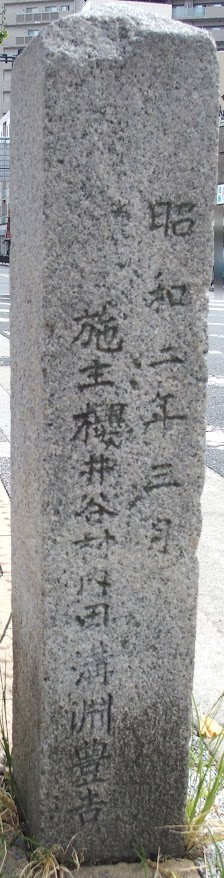 昭和二年三月
施主櫻井谷村内田溝淵豊吉